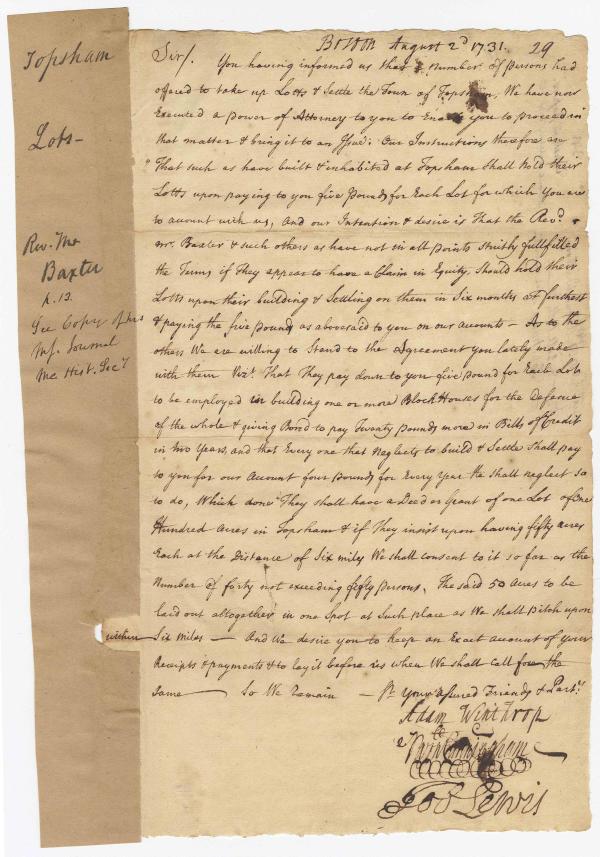 Topsham
Lots-
Rev. Mr
Baxter
p. 12.
See Copy of his
Ms. Journal
Me Hist. Soc'y
Boston August 2d 1731. 29
Sir/. You having informed us that a number of Persons had
offered to take up Lotts & Settle the Town of Topsham, We have now
Executed a Power of Attorney to you to Enable you to proceed in
that matter & bring it to an Issue: Our Instructions therefore are
That such as have built & inhabited at Topsham Shall hold their
Lotts upon paying to you five Pounds for Each Lot for which you are
to acount with us, And our Intention & desire is That the Revd.
Mr. Baxter & such others as have not in all points Strictly fullfilled
the Terms if They appear to have a Claim in Equity, Should hold their
Lotts upon their building & Settling on them in Six months at furthest
& paying the five Pound as abovesaid to you on our Accounts - As to the
others We are willing to Stand to the Agreement you lately made
with them Vizt. That They pay down to you five Pound for Each Lott
to be employed in building one or more Block Houses for the Defence
of the whole & giving Bond to pay Twenty Pounds more in Bills of Credit
in two Years, and that Every one that Neglects to build & Settle Shall pay
to you for our Account four Pounds for Every Year He shall neglect so
to do, Which done They shall have a Deed or Grant of one Lot of One
Hundred Acres in Topsham & if They insist upon having fifty acres
Each at the Distance of Six miles We shall consent to it so far as the
Number of forty not exceeding fifty Persons. The said 50 Acres to be
laid out altogether in one Spot at Such place as We shall Pitch upon
within Six Miles — And We desire you to keep an Exact Account of your
Receipts & payments & to lay it before us when We shall call for the
Same — So We Remain — Sr. Your assured Friends & Partrs
Adam Winthrop
Cunningham
Job Lewis